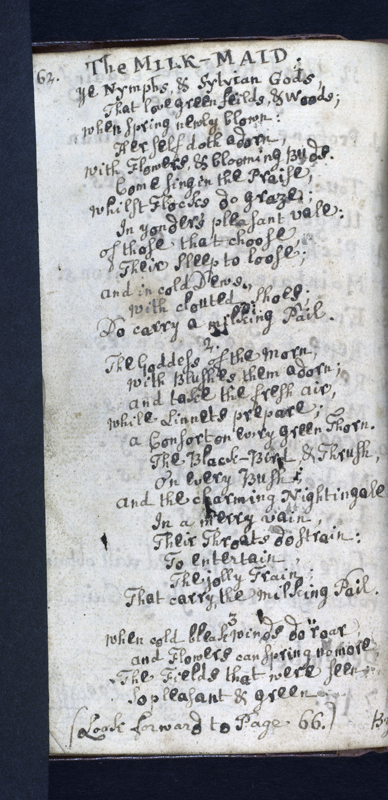 62. The MILK-MAID:
Ye Nymphs, & Sylvian Gods,
That love green feilds, & Woods;
when Spring newly blown:
Her self doth adorn,
with Flowers, & blooming Buds.
Come sing in the Praise,
whilst Flocks do graze;
In yonder pleasant vale:
of those that choose,
Their sleep to loose;
and in cold Dews,
with clouted shoes;
Do carry a milking Pail.
2.
The Goddess of the morn,
with Blushes them adorn;
and take the fresh air,
while Linnets prepare;
a Consort on every green Thorn.
The Black-Bird & Thrush,
on every Bush;
and the charming Nightingale
In a merry vain,
Their Throats do strain:
To entertain,
The jolly Train
That carry the milking Pail.
3
when cold bleak winds do roar
and Flowers can spring no more
The Fields that were seen
so pleasant & green
(Look forward to Page 66.)